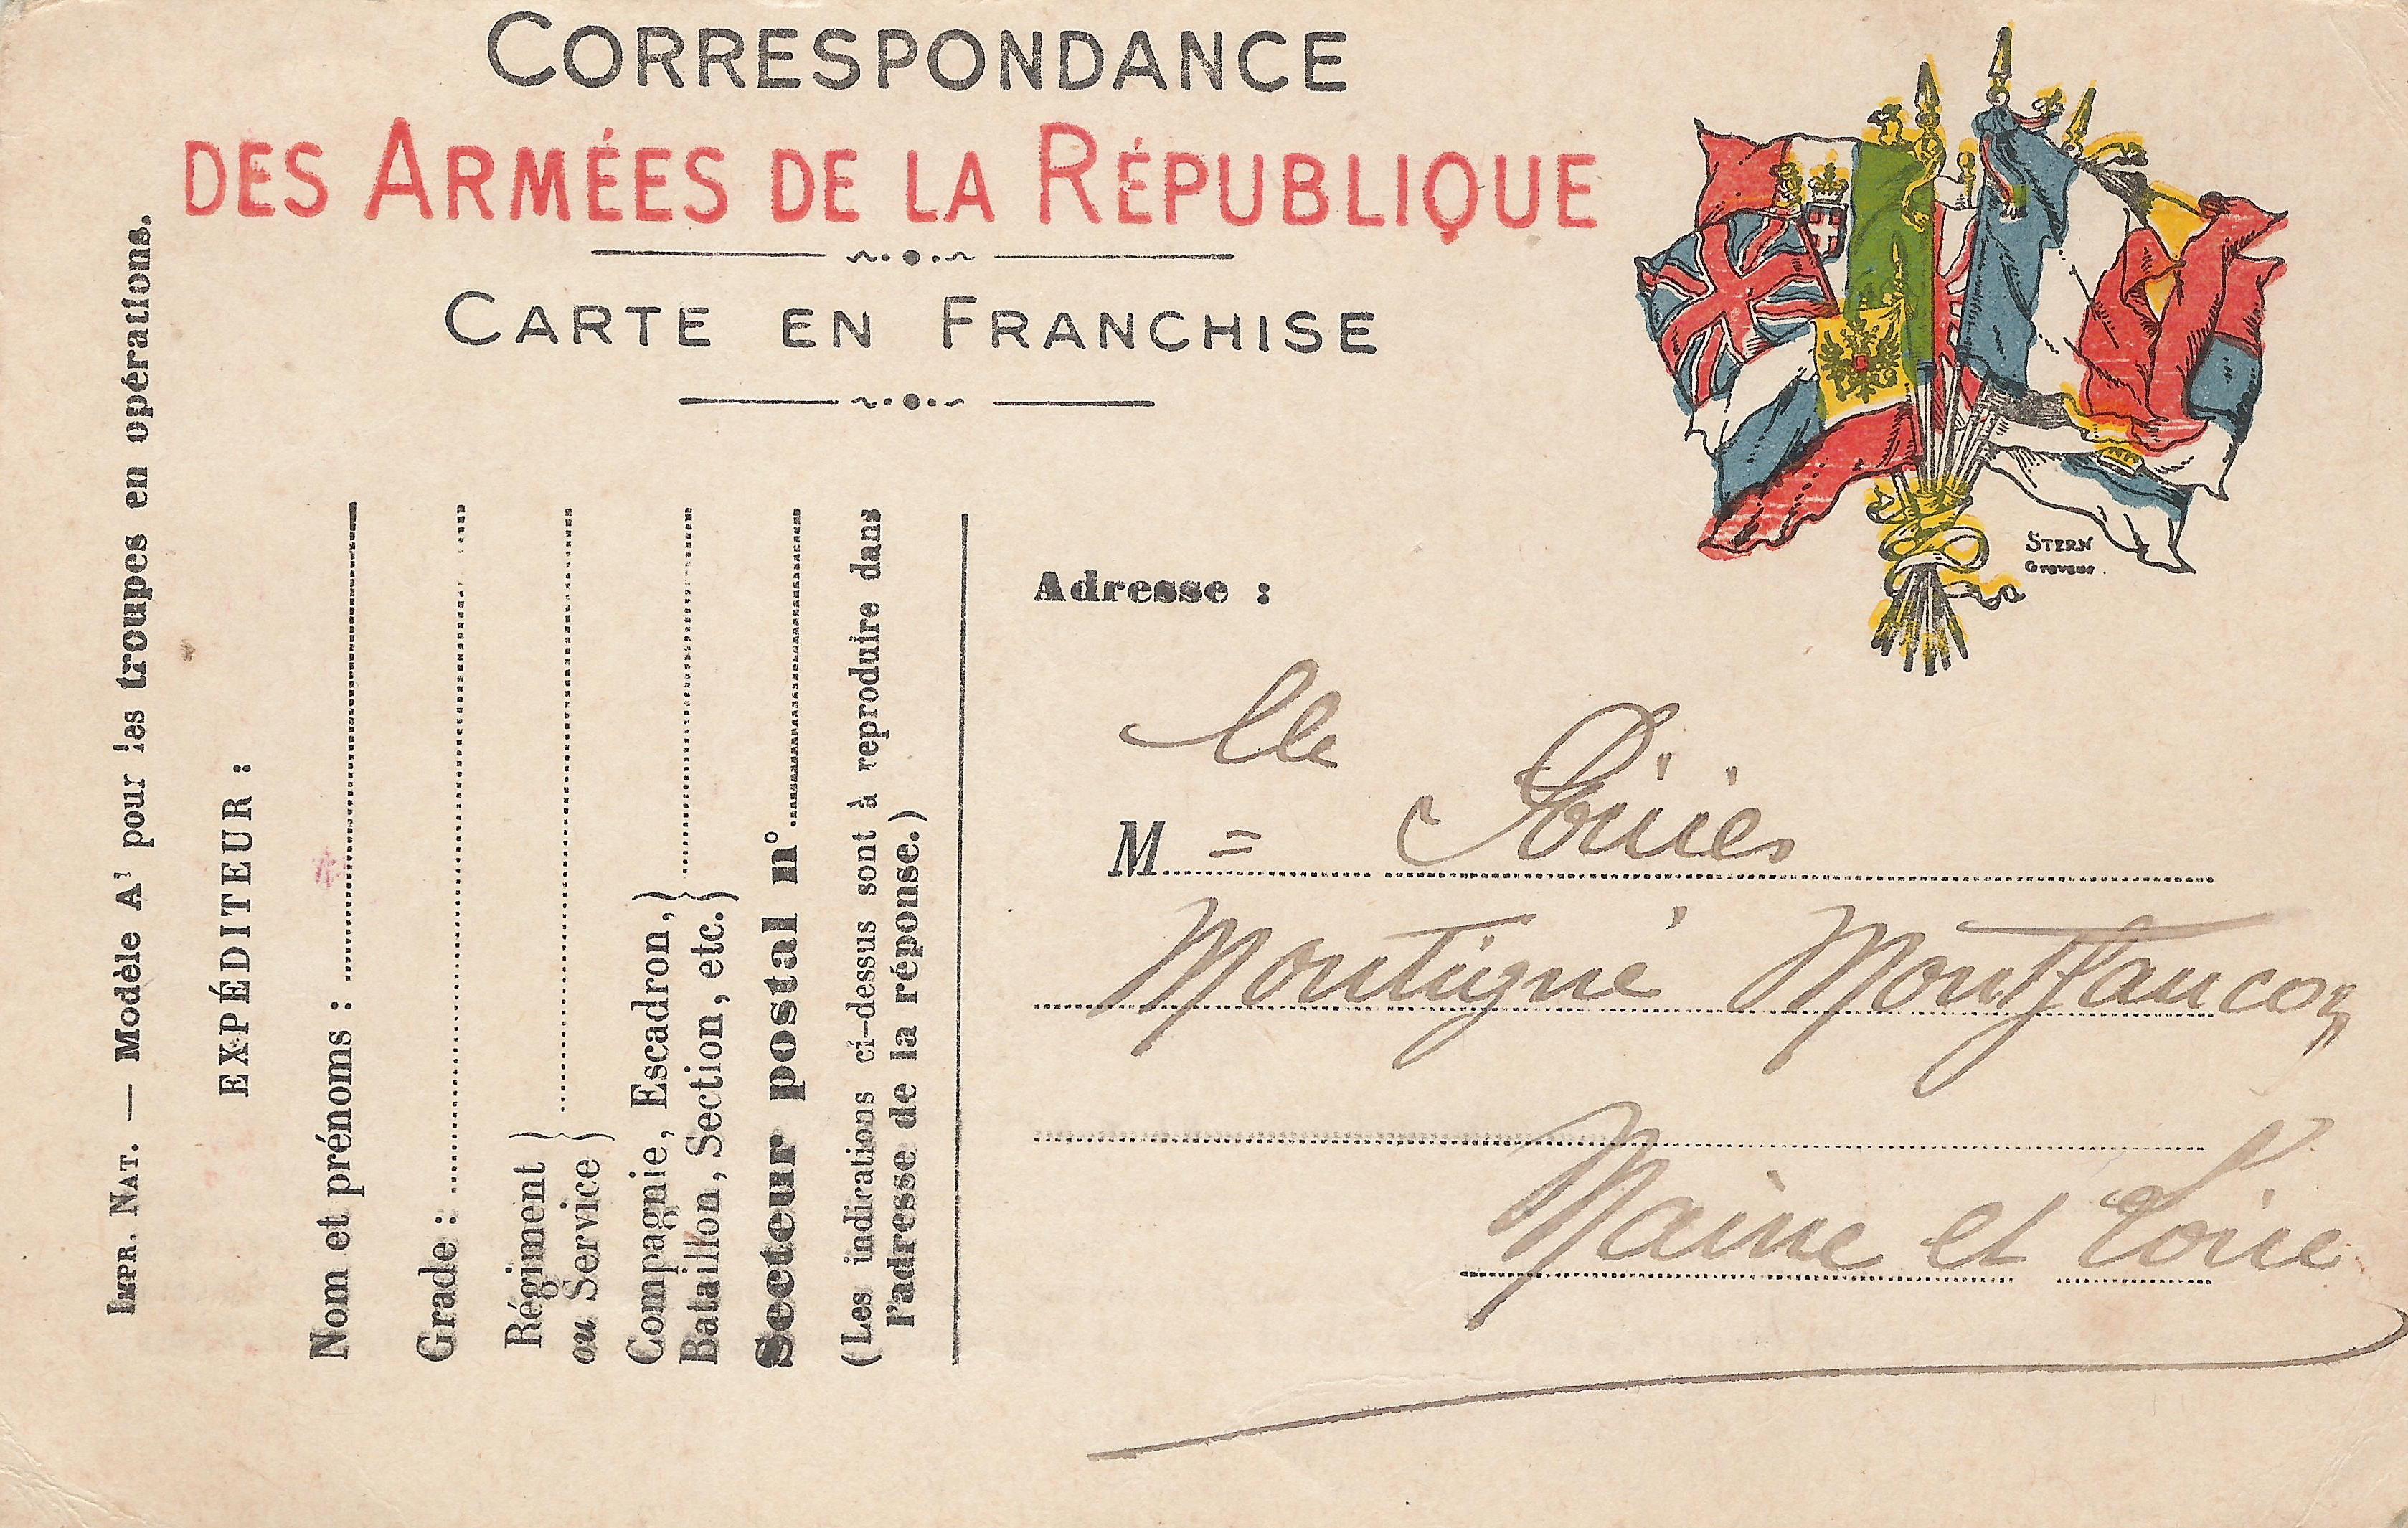 CORRESPONDANCE
DES ARMÉES DE LA RÉPUBLIQUE
CARTE EN FRANCHISE
IMPR. NAT. — Modèle A¹ pour les troupes en opérations.
EXPÉDITEUR :
Nom et prénoms :
Grade :
Régiment
ou Service
Compagnie, Escadron,
Bataillon, Section, etc.
Secteur postal n°
(Les indications ci-dessus sont à reproduire dans
l'adresse de la réponse.)
STERN
Graveur.
Adresse :
M lle
Montigné Montfaucon
Maine et Loire